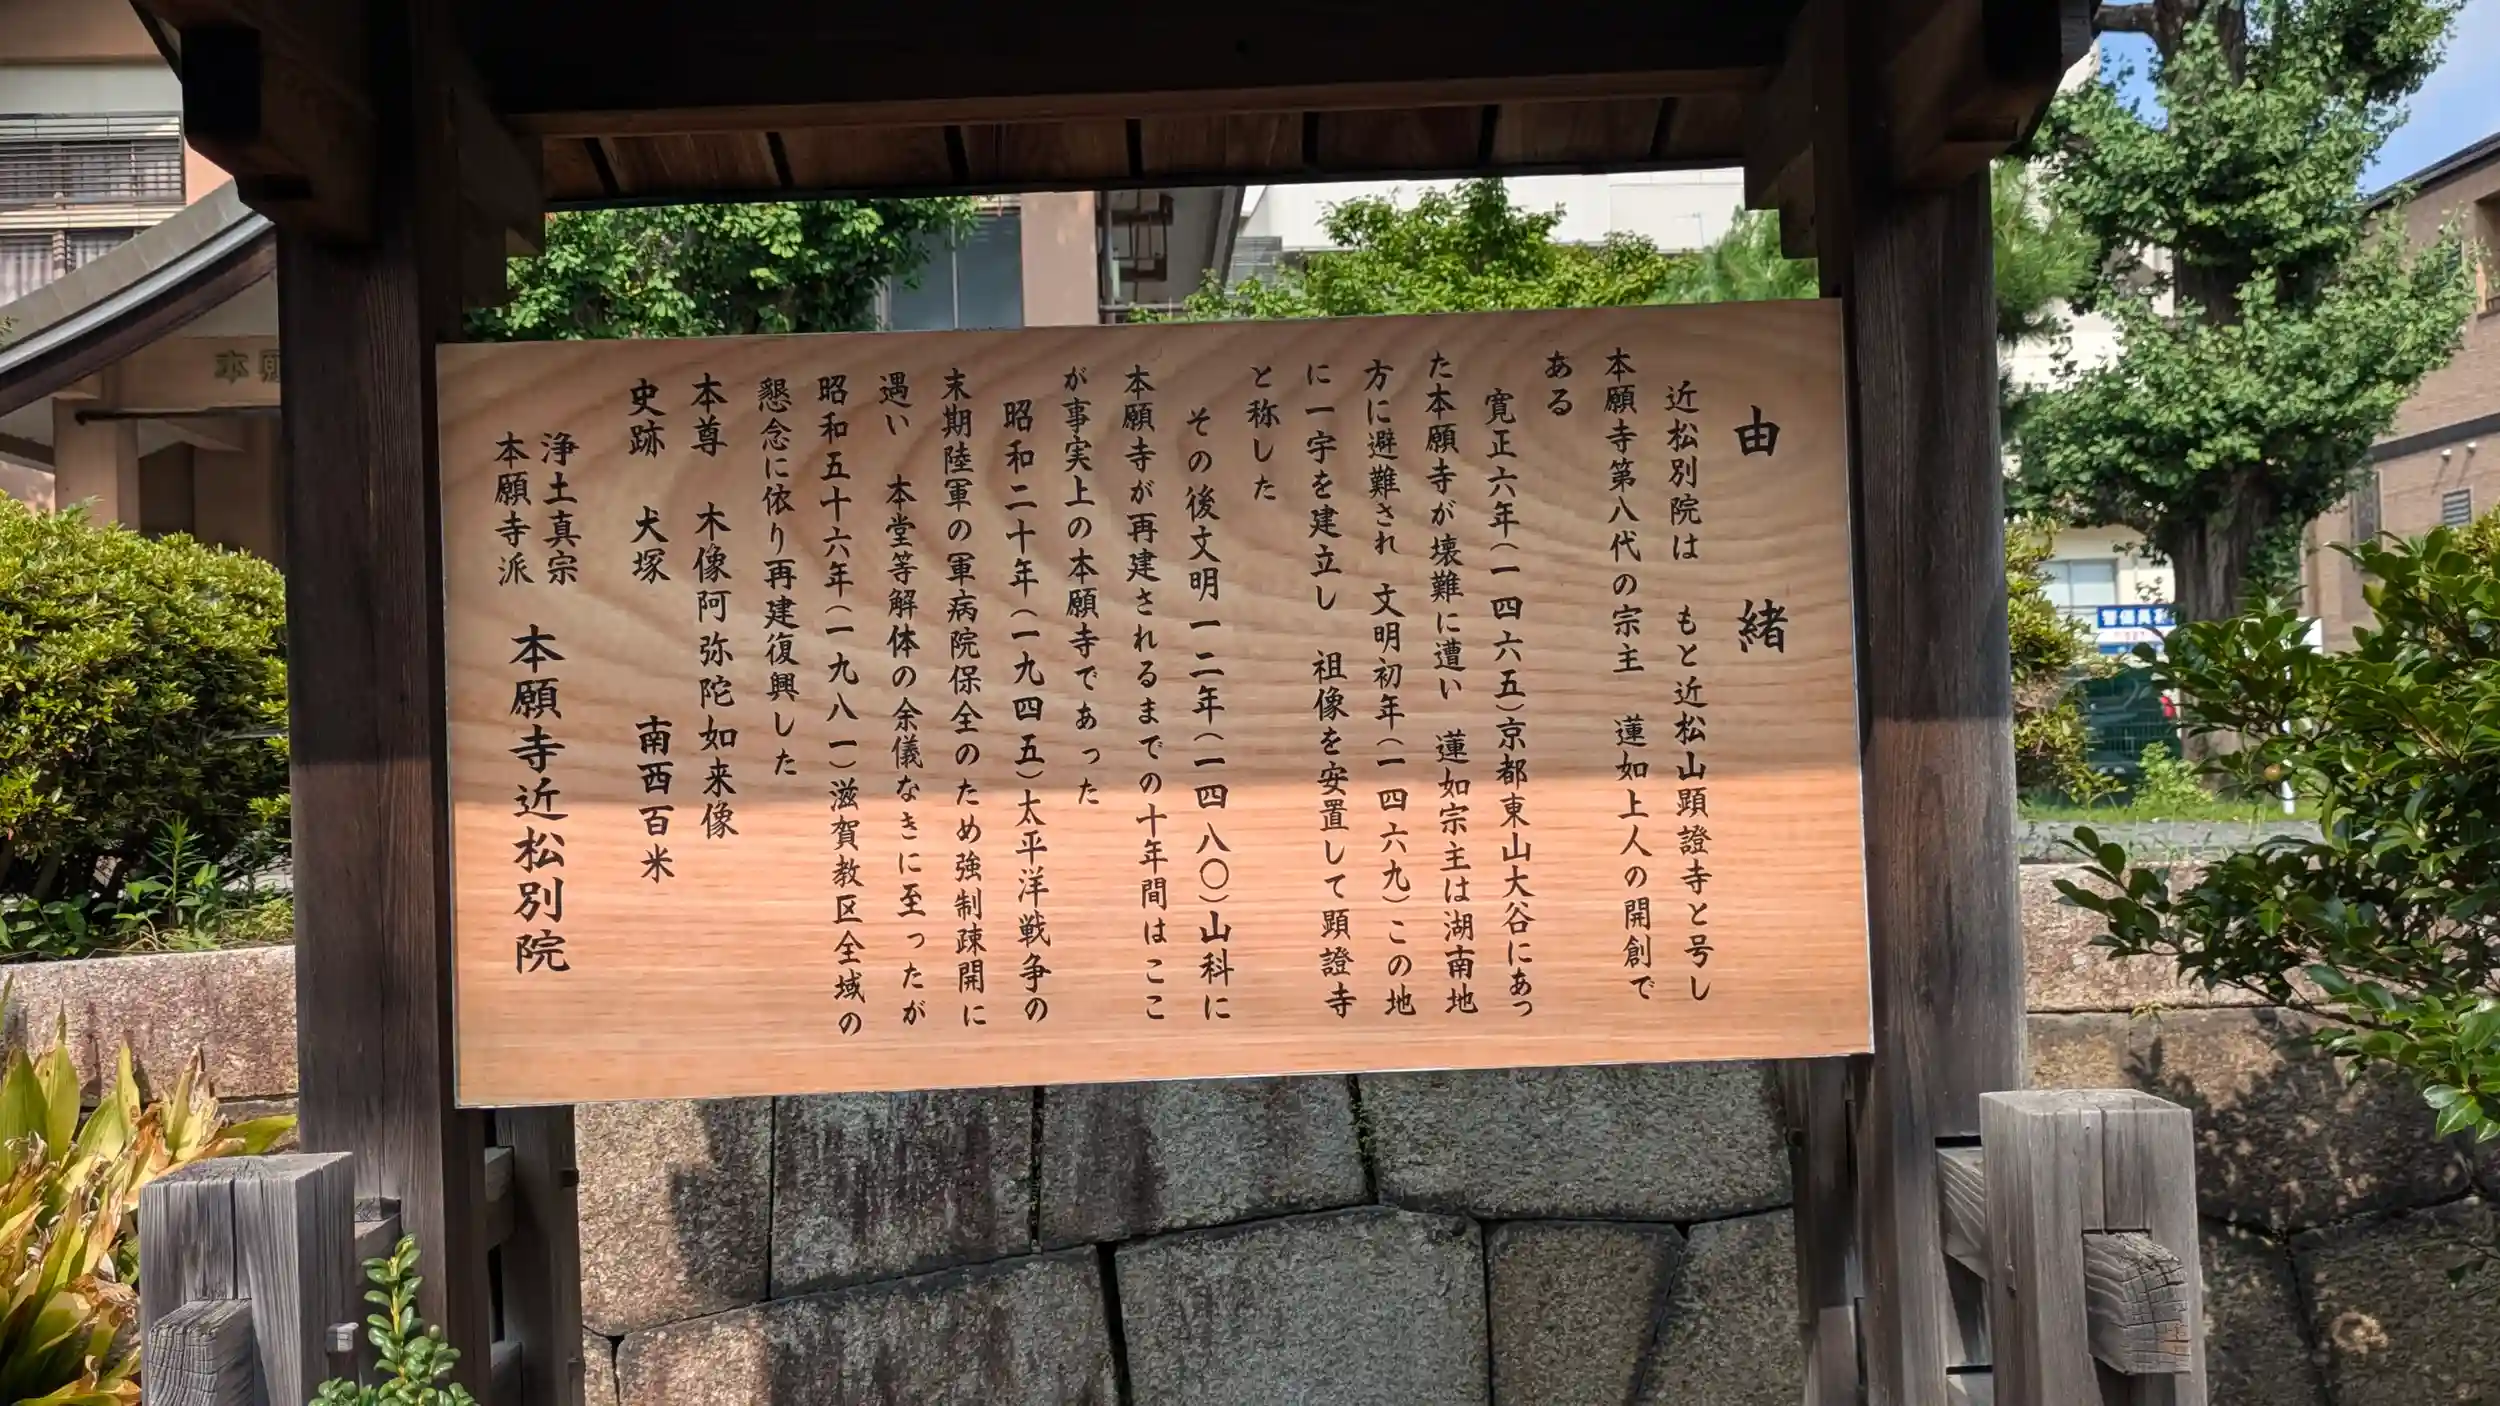 由緒
近松別院は　もと近松山顕證寺と号し
本願寺第八代の宗主　蓮如上人の開創で
ある
寛正六年（一四六五）京都東山大谷にあっ
た本願寺が壊難に遭い　蓮如宗主は湖南地
方に避難され　文明初年（一四六九）この地
に一宇を建立し　祖像を安置して顕證寺
と称した
その後文明一二年（一四八〇）山科に
本願寺が再建されるまでの十年間はここ
が事実上の本願寺であった
昭和二十年（一九四五）太平洋戦争の
末期陸軍の軍病院保全のため強制疎開に
遇い　本堂等解体の余儀なきに至ったが
昭和五十六年（一九八一）滋賀教区全域の
懇念に依り再建復興した
本尊　木像阿弥陀如来像
史跡　犬塚　南西百米
浄土真宗
本願寺派
本願寺近松別院
本願